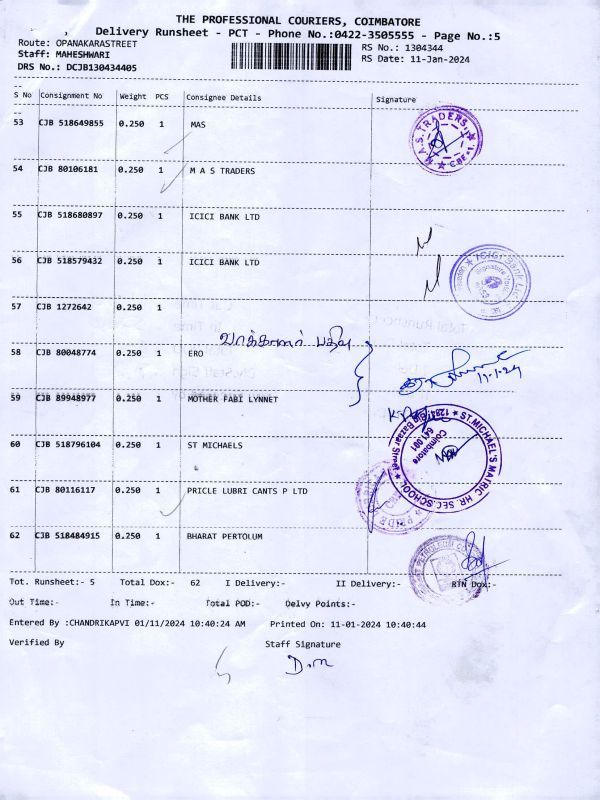 THE PROFESSIONAL COURIERS, COIMBATORE
, Delivery Runsheet - PCT - Phone No.:0422-3505555 - Page No.:5
Route: OPANAKARASTREET RS No.: 1304344
Staff: MAHESHWARI RS Date: 11-Jan-2024
DRS No.: DCJB130434405
S No Consignment No Weight PCS Consignee Details Signature
53 CJB 518649855 0.250 1 MAS
M.A.S. TRADERS ★ CBE-1. ★
54 CJB 80106181 0.250 1 M A S TRADERS
55 CJB 518680897 0.250 1 ICICI BANK LTD
56 CJB 518579432 0.250 1 ICICI BANK LTD
ICICI Bank
57 CJB 1272642 0.250 1
வாக்காளர் பதிவு
58 CJB 80048774 0.250 1 ERO
11-1-24
59 CJB 89948977 0.250 1 MOTHER FABI LYNNET
60 CJB 518796104 0.250 1 ST MICHAELS
★ ST.MICHAEL'S MATRIC. HR. SEC. SCHOOL ★ Big Bazaar Street, Coimbatore 641 001
61 CJB 80116117 0.250 1 PRICLE LUBRI CANTS P LTD
PRIDE
62 CJB 518484915 0.250 1 BHARAT PERTOLUM
Tot. Runsheet:- 5 Total Dox:- 62 I Delivery:- II Delivery:- RTN Dox:-
Out Time:- In Time:- Total POD:- Delvy Points:-
Entered By :CHANDRIKAPVI 01/11/2024 10:40:24 AM Printed On: 11-01-2024 10:40:44
Verified By Staff Signature